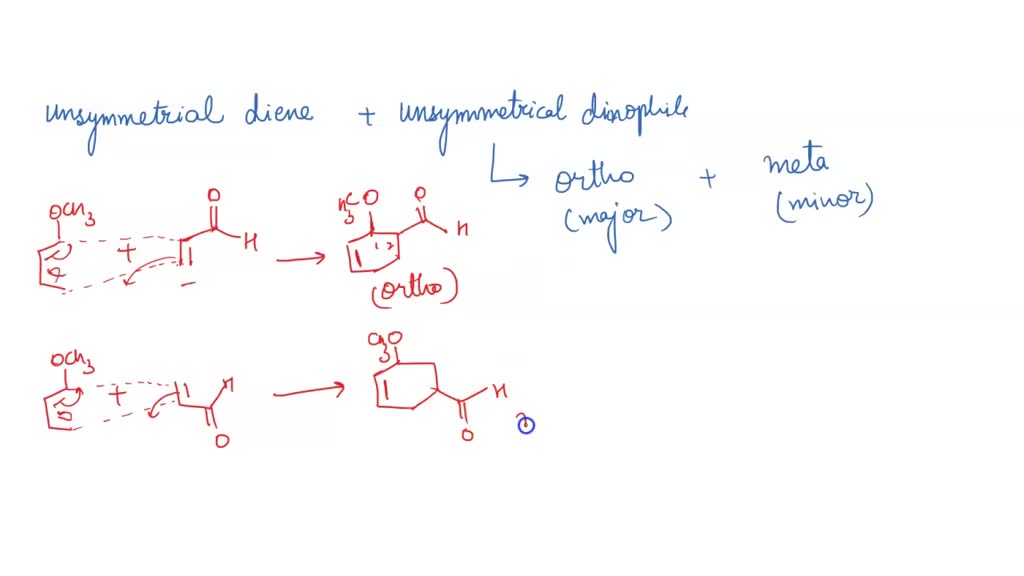 unsymmetrial diene + unsymmetrical dinophile
ortho + meta
(major) (minor)
OCH3 + O H → H3CO 1 2 O H
(ortho)
OCH3 + H O → CH3O H O